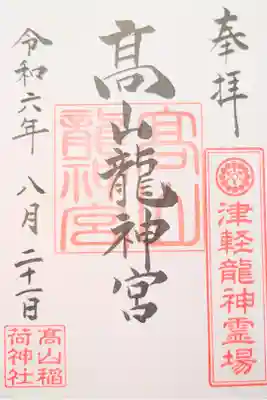 奉拝
津軽龍神霊場
髙山龍神宮
髙山
龍神宮
令和六年 八月 二十一日
高山稲
荷神社